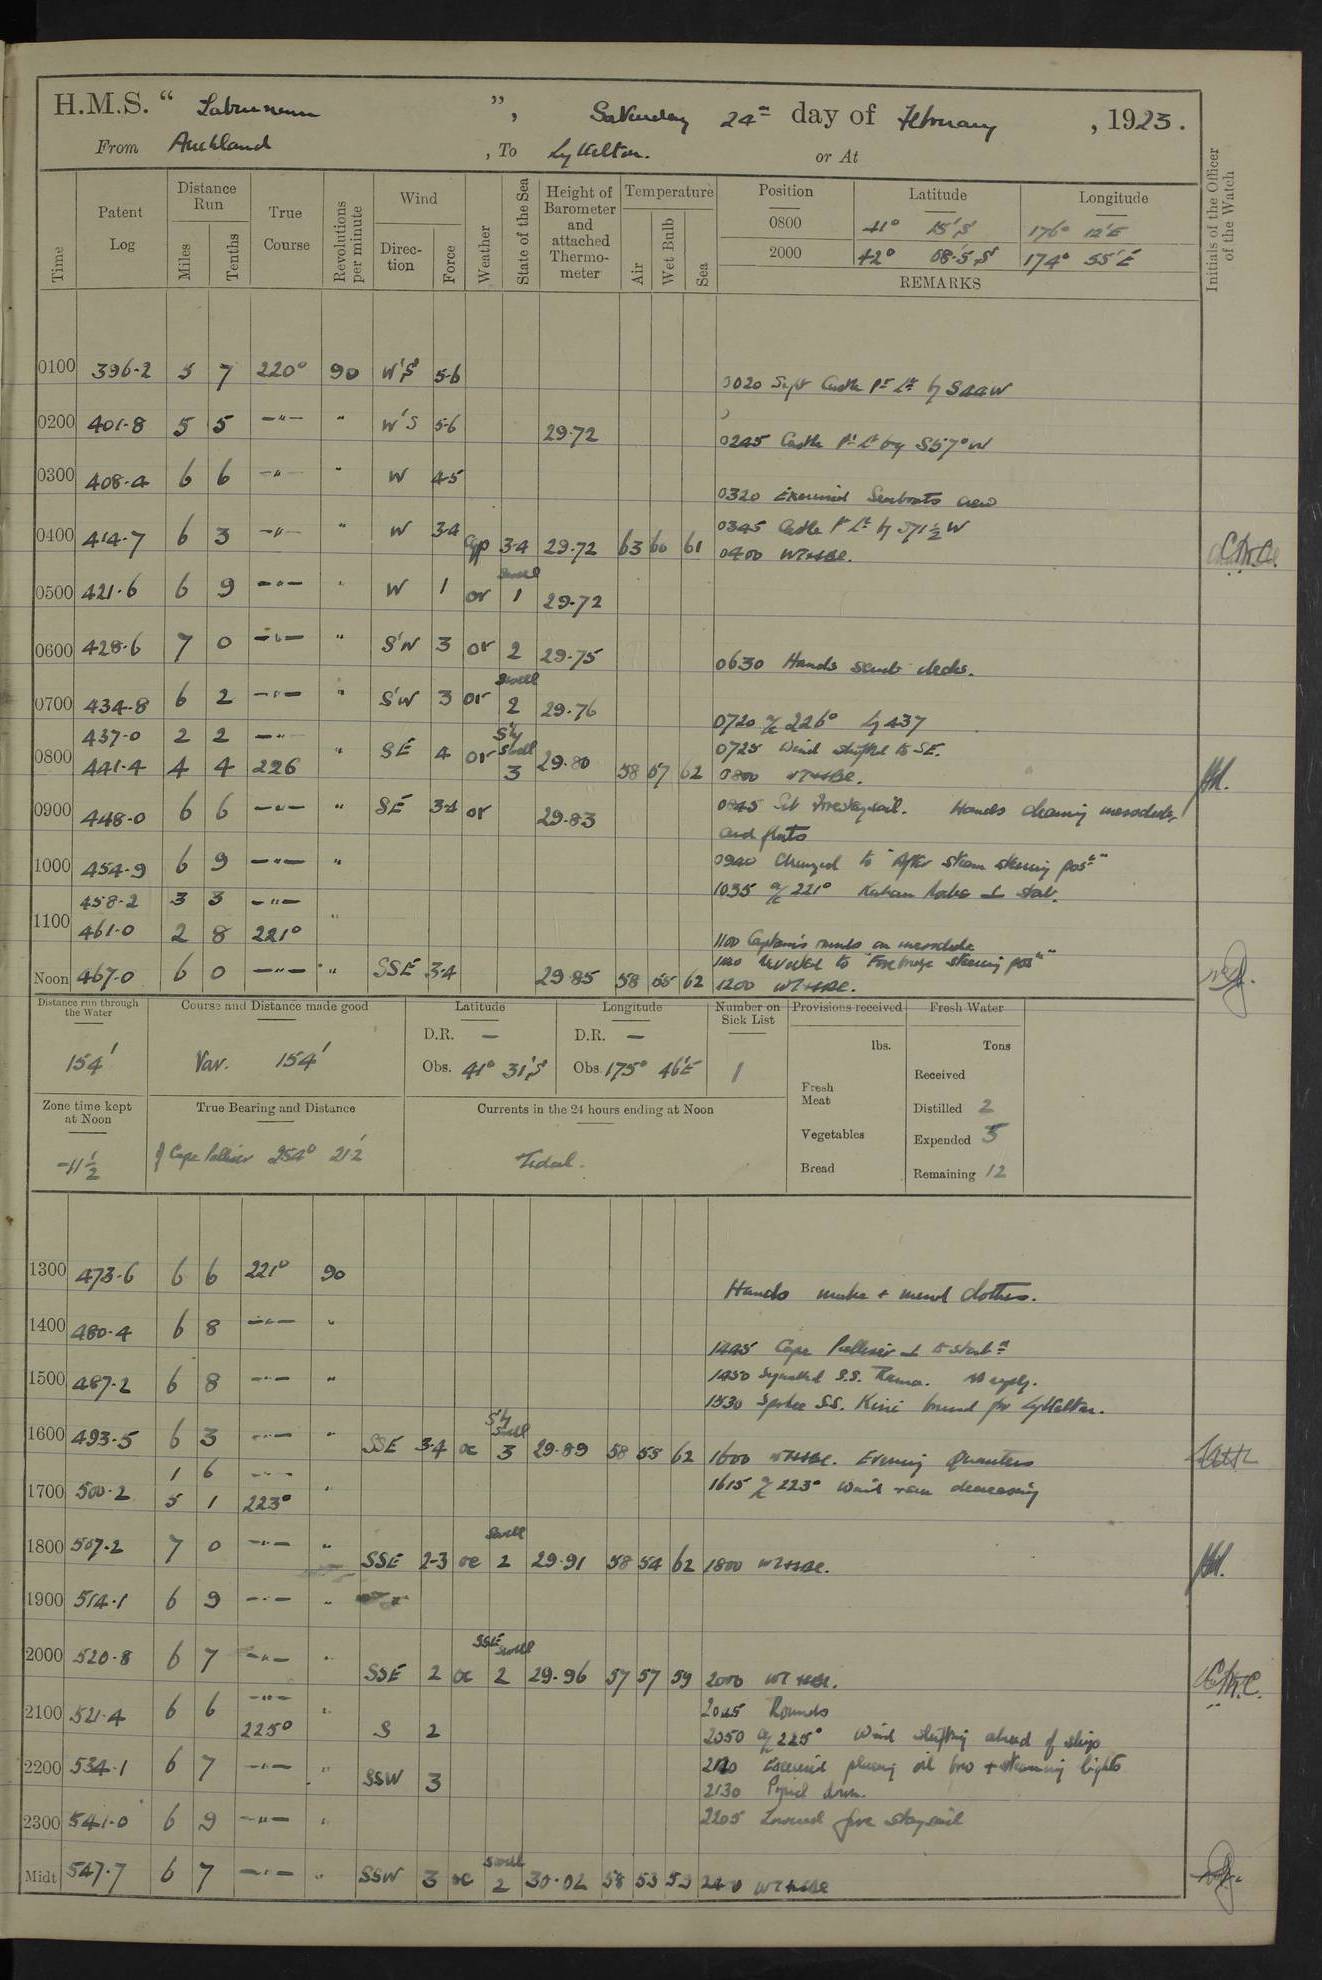 H.M.S. " Laburnum ", Saturday 24th day of February, 1923.
From Auckland, To Lyttelton. or At
Time Patent Log Distance Run Miles Tenths True Course Revolutions per minute Wind Direction Force Weather State of the Sea Height of Barometer and attached Thermometer Temperature Air Wet Bulb Sea Position Latitude Longitude Initials of the Officer of the Watch
0800 41° 15'S 176° 12'E
2000 42° 08.5'S 174° 55'E
REMARKS
0100 396.2 5 7 220° 90 W'S 5-6
0020 Castle Pt Lt
0200 401.8 5 5 -"- " W'S 5-6 29.72
0245 Castle Pt Lt by S57°W
0300 408.4 6 6 -"- " W 4-5
0320 Exercised Seaboats crew
0345 Castle Pt Lt by S71½W
0400 414.7 6 3 -"- " W 3-4 3-4 29.72 63 60 61
0400
0500 421.6 6 9 -"- " W 1 or Swell 1 29.72
0600 428.6 7 0 -"- " S'W 3 or 2 29.75
0630 Hands scrub decks.
0700 434.8 6 2 -"- " S'W 3 or Swell 2 29.76
0720 a/c 226° Lg 437
437.0 2 2 -"-
0725 Wind shifted to SE.
0800 441.4 4 4 226 " SE 4 or S'ly Swell 3 29.80 58 57 62
0800
0900 448.0 6 6 -"- " SE 3-4 or 29.83
0845 Set Forestaysail. Hands cleaning messdecks
and flats
1000 454.9 6 9 -"- "
0940 Changed to "After steam steering posn"
458.2 3 3 -"-
1035 a/c 221°
1100 461.0 2 8 221° "
1100 Captain's rounds on messdecks
to "Forebridge steering posn"
Noon 467.0 6 0 -"- " SSE 3-4 29.85 58 55 62
1200
Distance run through the Water Course and Distance made good Latitude Longitude Number on Sick List Provisions received Fresh Water
154' Var. 154' D.R. — D.R. — lbs. Tons
Obs. 41° 31'S Obs. 175° 46'E 1
Fresh Meat Received
Zone time kept at Noon True Bearing and Distance Currents in the 24 hours ending at Noon Distilled 2
Vegetables Expended 5
-11½ of Cape Palliser 254° 21.2' Tidal.
Bread Remaining 12
1300 473.6 6 6 221° 90
Hands make + mend clothes.
1400 480.4 6 8 -"- "
1445 Cape Palliser ⊥ to starbd
1500 487.2 6 8 -"- "
1450 Signalled S.S. No reply.
1530 Spoke S.S. Kini bound for Lyttelton.
1600 493.5 6 3 -"- " SSE 3-4 oc S'ly Swell 3 29.89 58 55 62
1600 Evening Quarters
1 6 -"-
1615 a/c 223° Wind + sea decreasing
1700 500.2 5 1 223° "
1800 507.2 7 0 -"- " SSE 2-3 oc Swell 2 29.91 58 54 62
1800
1900 514.1 6 9 -"- "
2000 520.8 6 7 -"- " SSE 2 oc SSE Swell 2 29.96 57 57 59
2000
2045 Rounds
2100 521.4 6 6 -"- "
225° S 2
2050 a/c 225° Wind shifting ahead of ship
2200 534.1 6 7 -"- " SSW 3
2120 Exercised placing oil bow + steaming lights
2130 Piped down.
2300 541.0 6 9 -"- "
2205 Lowered fore staysail
Midt 547.7 6 7 -"- " SSW 3 oc Swell 2 30.02 58 53 59